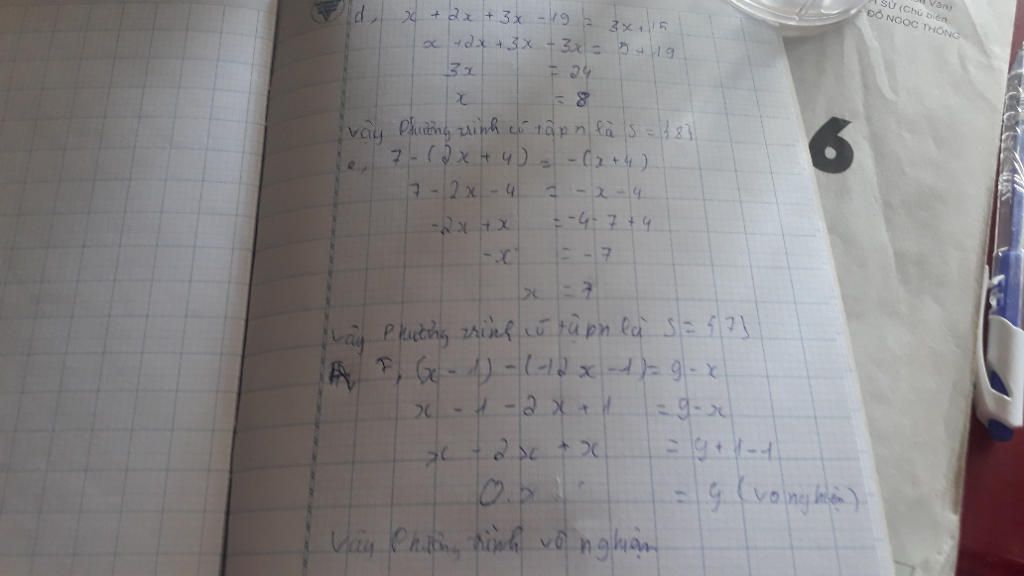 d, x + 2x + 3x - 19 = 3x + 15
x + 2x + 3x - 3x = 5 + 19
3x = 24
x = 8
Vậy phương trình có tập n là S = {8}
e, 7 - (2x + 4) = -(x + 4)
7 - 2x - 4 = -x - 4
-2x + x = -4 - 7 + 4
-x = -7
x = 7
Vậy phương trình có tập n là S = {7}
F, (x - 1) - (-12x - 1) = 9 - x
x - 1 - 2x + 1 = 9 - x
x - 2x + x = 9 + 1 - 1
0.x = 9 (vô nghiệm)
Vậy phương trình vô nghiệm
Văn)
SỬ (Chủ biên
ĐỖ NGỌC THỐNG
6